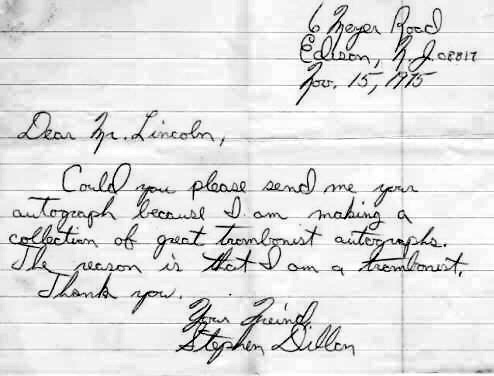 6 Meyer Road
Edison, N.J. 08817
Nov. 15, 1975
Dear Mr. Lincoln,
Could you please send me your
autograph because I am making a
collection of great trombonist autographs.
The reason is that I am a trombonist.
Thank you.
Your Freind
Stephen Dillon